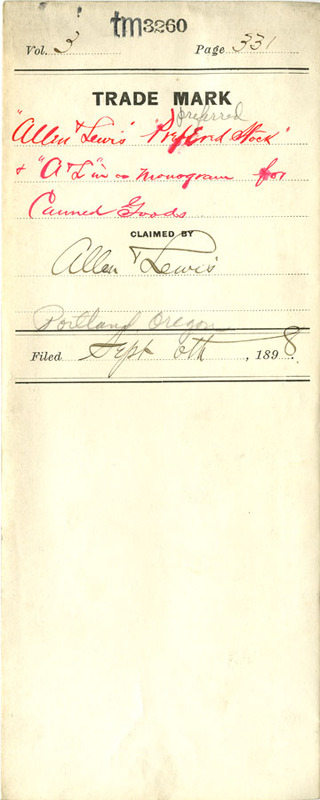 tm3260
Vol. 3 Page 331
TRADE MARK
preferred
"Allen & Lewis' Preferred Stock"
& "A & L" in a monogram for
Canned Goods
CLAIMED BY
Allen & Lewis
Portland Oregon
Filed Sept 6th, 1898.